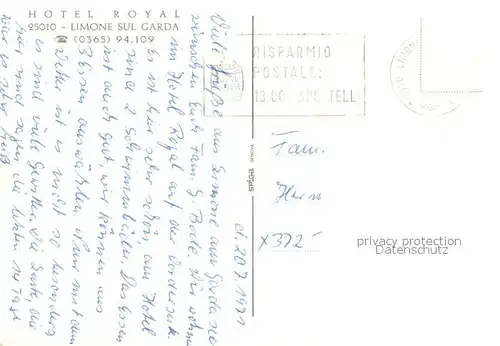 HOTEL ROYAL
25010 - LIMONE SUL GARDA
☎ (0365) 94.109
d. 20.7.1971
Viele Grüße aus Limone am Gardasee
wünschen Euch Fam. G. Bode. Wir wohnen
im Hotel Royal auf der Vorderseite.
Es ist hier sehr schön, am Hotel
sind 2 Schwimmbäder. Das Essen
ist auch gut, wir können aus
3 Essen auswählen. Nur mit dem
Wetter ist es nicht so besonders
es sind viele Gewitter. Die Leute, die
hier sind sagen die letzten 14 Tage
war es sehr heiß.
RISPARMIO
POSTALE:
13.00 SPORTELLI
Fam.
Herrn
X372
privacy protection
Datenschutz